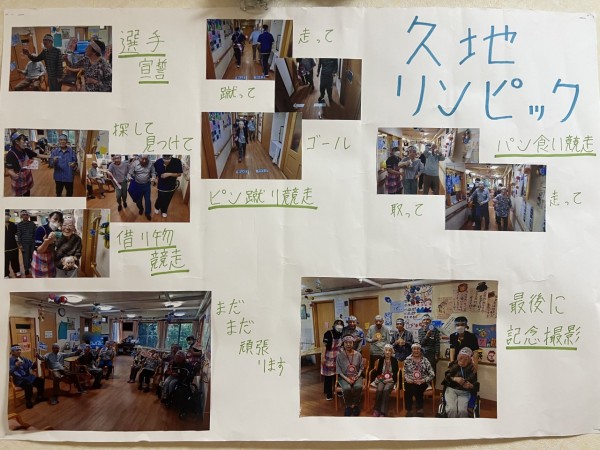 久地
リンピック
選手
宣誓
走って
蹴って
ゴール
ピン蹴り競走
探して
見つけて
借り物
競走
パン食い競走
取って
走って
まだ
まだ
頑張
ります
最後に
記念撮影